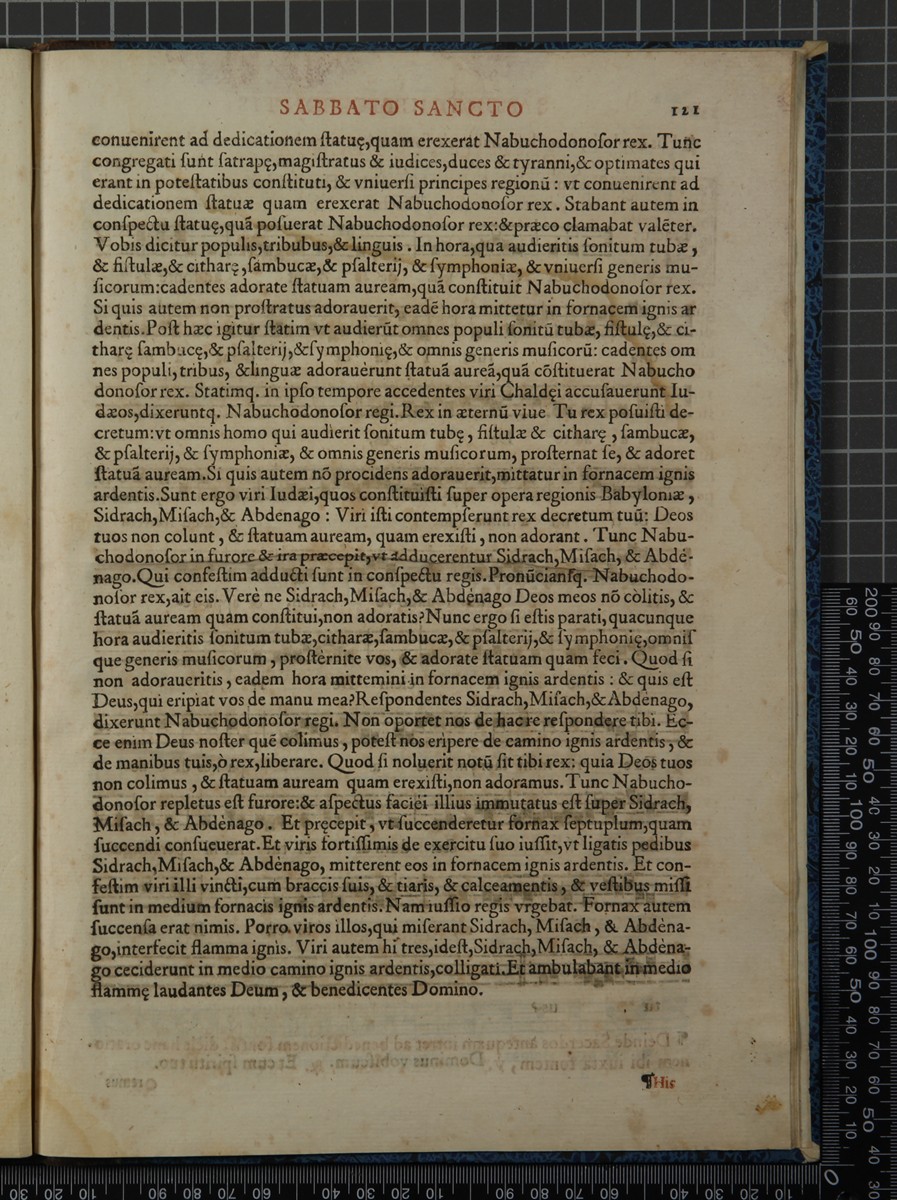 SABBATO SANCTO 121
conuenirent ad dedicationem ſtatuę,quam erexerat Nabuchodonoſor rex. Tunc
congregati ſunt ſatrapę,magiſtratus & iudices,duces & tyranni,& optimates qui
erant in poteſtatibus conſtituti, & vniuerſi principes regionū : vt conuenirent ad
dedicationem ſtatuæ quam erexerat Nabuchodonoſor rex. Stabant autem in
conſpectu ſtatuę,quā poſuerat Nabuchodonoſor rex:&præco clamabat valēter.
Vobis dicitur populis,tribubus,& linguis . In hora,qua audieritis ſonitum tubæ ,
& fiſtulæ,& citharę,ſambucæ,& pſalterij, & ſymphoniæ, & vniuerſi generis mu-
ſicorum:cadentes adorate ſtatuam auream,quā conſtituit Nabuchodonoſor rex.
Si quis autem non proſtratus adorauerit, eadē hora mittetur in fornacem ignis ar
dentis.Poſt hæc igitur ſtatim vt audierūt omnes populi ſonitū tubæ, fiſtulę,& ci-
tharę ſambucę,& pſalterij,&ſymphonię,& omnis generis muſicorū: cadentes om
nes populi,tribus, &linguæ adorauerunt ſtatuā aureā,quā cōſtituerat Nabucho
donoſor rex. Statimq. in ipſo tempore accedentes viri Chaldęi accuſauerunt Iu-
dæos,dixeruntq. Nabuchodonoſor regi.Rex in æternū viue Tu rex poſuiſti de-
cretum:vt omnis homo qui audierit ſonitum tubę , fiſtulæ & citharę , ſambucæ,
& pſalterij, & ſymphoniæ, & omnis generis muſicorum, proſternat ſe, & adoret
ſtatuā auream.Si quis autem nō procidens adorauerit,mittatur in fornacem ignis
ardentis.Sunt ergo viri Iudæi,quos conſtituiſti ſuper opera regionis Babyloniæ ,
Sidrach,Miſach,& Abdenago : Viri iſti contempſerunt rex decretum tuū: Deos
tuos non colunt , & ſtatuam auream, quam erexiſti , non adorant . Tunc Nabu-
chodonoſor in furore & ira præcepit,vt adducerentur Sidrach,Miſach, & Abdē-
nago.Qui confeſtim adducti ſunt in conſpectu regis.Pronūcianſq. Nabuchodo-
noſor rex,ait eis. Verè ne Sidrach,Miſach,& Abdènago Deos meos nō colitis, &
ſtatuā auream quam conſtitui,non adoratis?Nunc ergo ſi eſtis parati,quacunque
hora audieritis ſonitum tubæ,citharæ,ſambucæ,& pſalterij,& ſymphonię,omniſ
que generis muſicorum , proſtèrnite vos, & adorate ſtatuam quam feci . Quod ſi
non adoraueritis , eadem hora mittemini in fornacem ignis ardentis : & quis eſt
Deus,qui eripiat vos de manu mea?Reſpondentes Sidrach,Miſach,& Abdènago,
dixerunt Nabuchodonoſor regi. Non oportet nos de hac re reſpondere tibi. Ec-
ce enim Deus noſter quē colimus , poteſt nos eripere de camino ignis ardentis , &
de manibus tuis,ò rex,liberare. Quod ſi noluerit notū ſit tibi rex: quia Deos tuos
non colimus , & ſtatuam auream quam erexiſti,non adoramus. Tunc Nabucho-
donoſor repletus eſt furore:& aſpectus faciei illius immutatus eſt ſuper Sidrach,
Miſach, & Abdènago . Et pręcepit , vt ſuccenderetur fornax ſeptuplum,quam
ſuccendi conſueuerat.Et viris fortiſſimis de exercitu ſuo iuſſit,vt ligatis pedibus
Sidrach,Miſach,& Abdènago, mitterent eos in fornacem ignis ardentis. Et con-
feſtim viri illi vincti,cum braccis ſuis, & tiaris, & calceamentis , & veſtibus miſſi
ſunt in medium fornacis ignis ardentis. Nam iuſſio regis vrgebat. Fornax autem
ſuccenſa erat nimis. Porro viros illos,qui miſerant Sidrach, Miſach , & Abdèna-
go,interfecit flamma ignis. Viri autem hi tres,ideſt,Sidrach,Miſach, & Abdèna-
go ceciderunt in medio camino ignis ardentis,colligati.Et ambulabant in medio
flammę laudantes Deum , & benedicentes Domino.
¶His